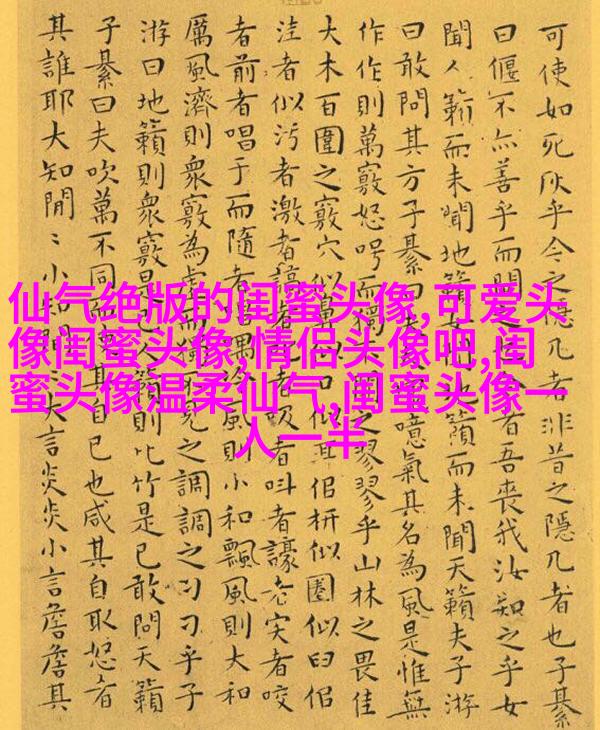 可使如死灰乎今之隱几者非昔之隱几者也子綦
曰偃不亦善乎而問之者吾喪我汝知之乎女
聞人籟而未聞地籟女籟而未聞天籟夫子游
曰敢問其方子綦曰夫噫氣其名為風是惟無
作作則萬竅怒呺而獨之翏翏乎山林之畏佳
大木百圍之竅穴似鼻似口似耳似枅似圈似臼似
洼者似污者激者謞者者吸者叫者譹者宎者咬
者前者唱于而隨者唱喁泠風則小和飄風則大和
厲風濟則衆竅為虛而獨見之調調之刁刁乎子
游曰地籟則衆竅是已人籟則比竹是已敢問天籟
子綦曰夫吹萬不同而使其自已也咸其自取怒者
其誰耶大知閒〻小知閒〻大言炎炎小言詹詹其
仙气绝版的闺蜜头像,可爱头
像闺蜜头像,情侣头像吧,闺
蜜头像温柔仙气,闺蜜头像一
人一半